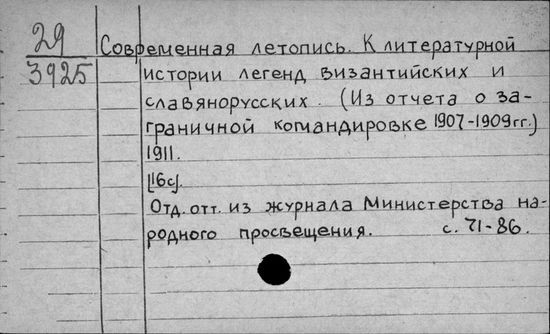 29
3925
Современная летопись. К литературной
истории легенд византийских и
славянорусских. (Из отчета о за-
граничной командировке 1907-1909гг.)
1911.
[16с].
Отд. отт. из журнала Министерства на-
родного просвещения. с. 71-86.